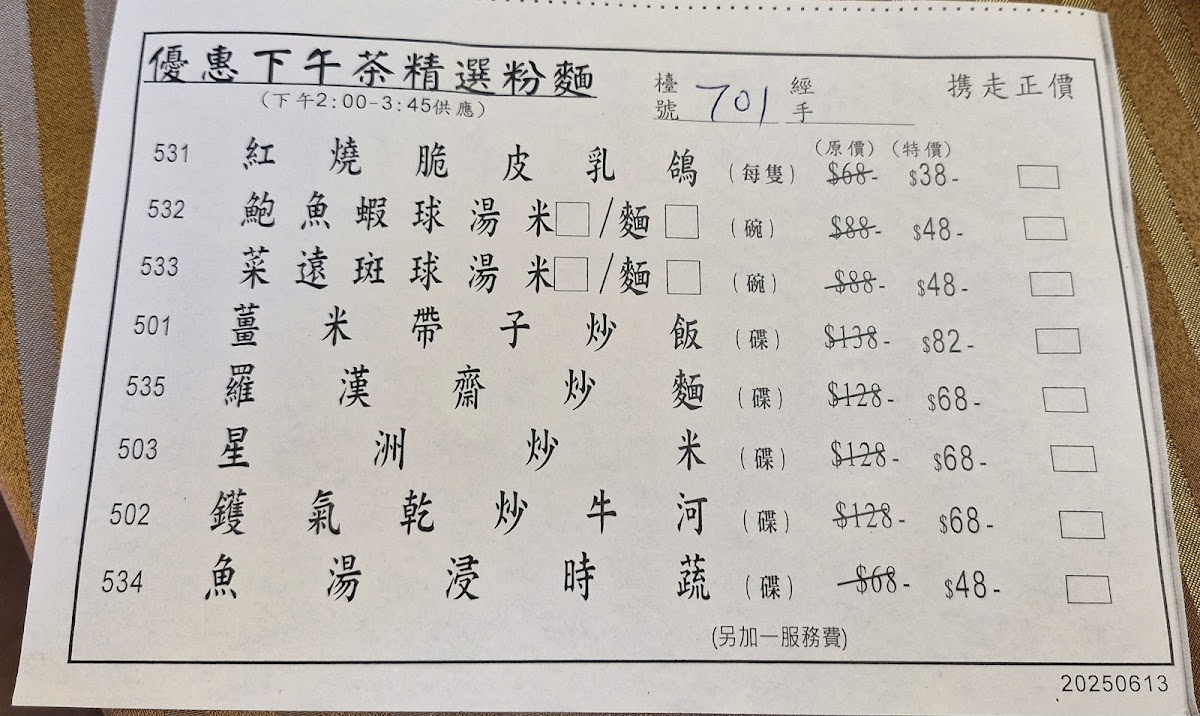 優惠下午茶精選粉麵
(下午2:00-3:45供應)
檯號 701 經手
携走正價
(原價) (特價)
531 紅燒脆皮乳鴿 (每隻) $68- $38-
532 鮑魚蝦球湯米□/麵□ (碗) $88- $48-
533 菜遠斑球湯米□/麵□ (碗) $88- $48-
501 薑米帶子炒飯 (碟) $138- $82-
535 羅漢齋炒麵 (碟) $128- $68-
503 星洲炒米 (碟) $128- $68-
502 鑊氣乾炒牛河 (碟) $128- $68-
534 魚湯浸時蔬 (碟) $68- $48-
(另加一服務費)
20250613